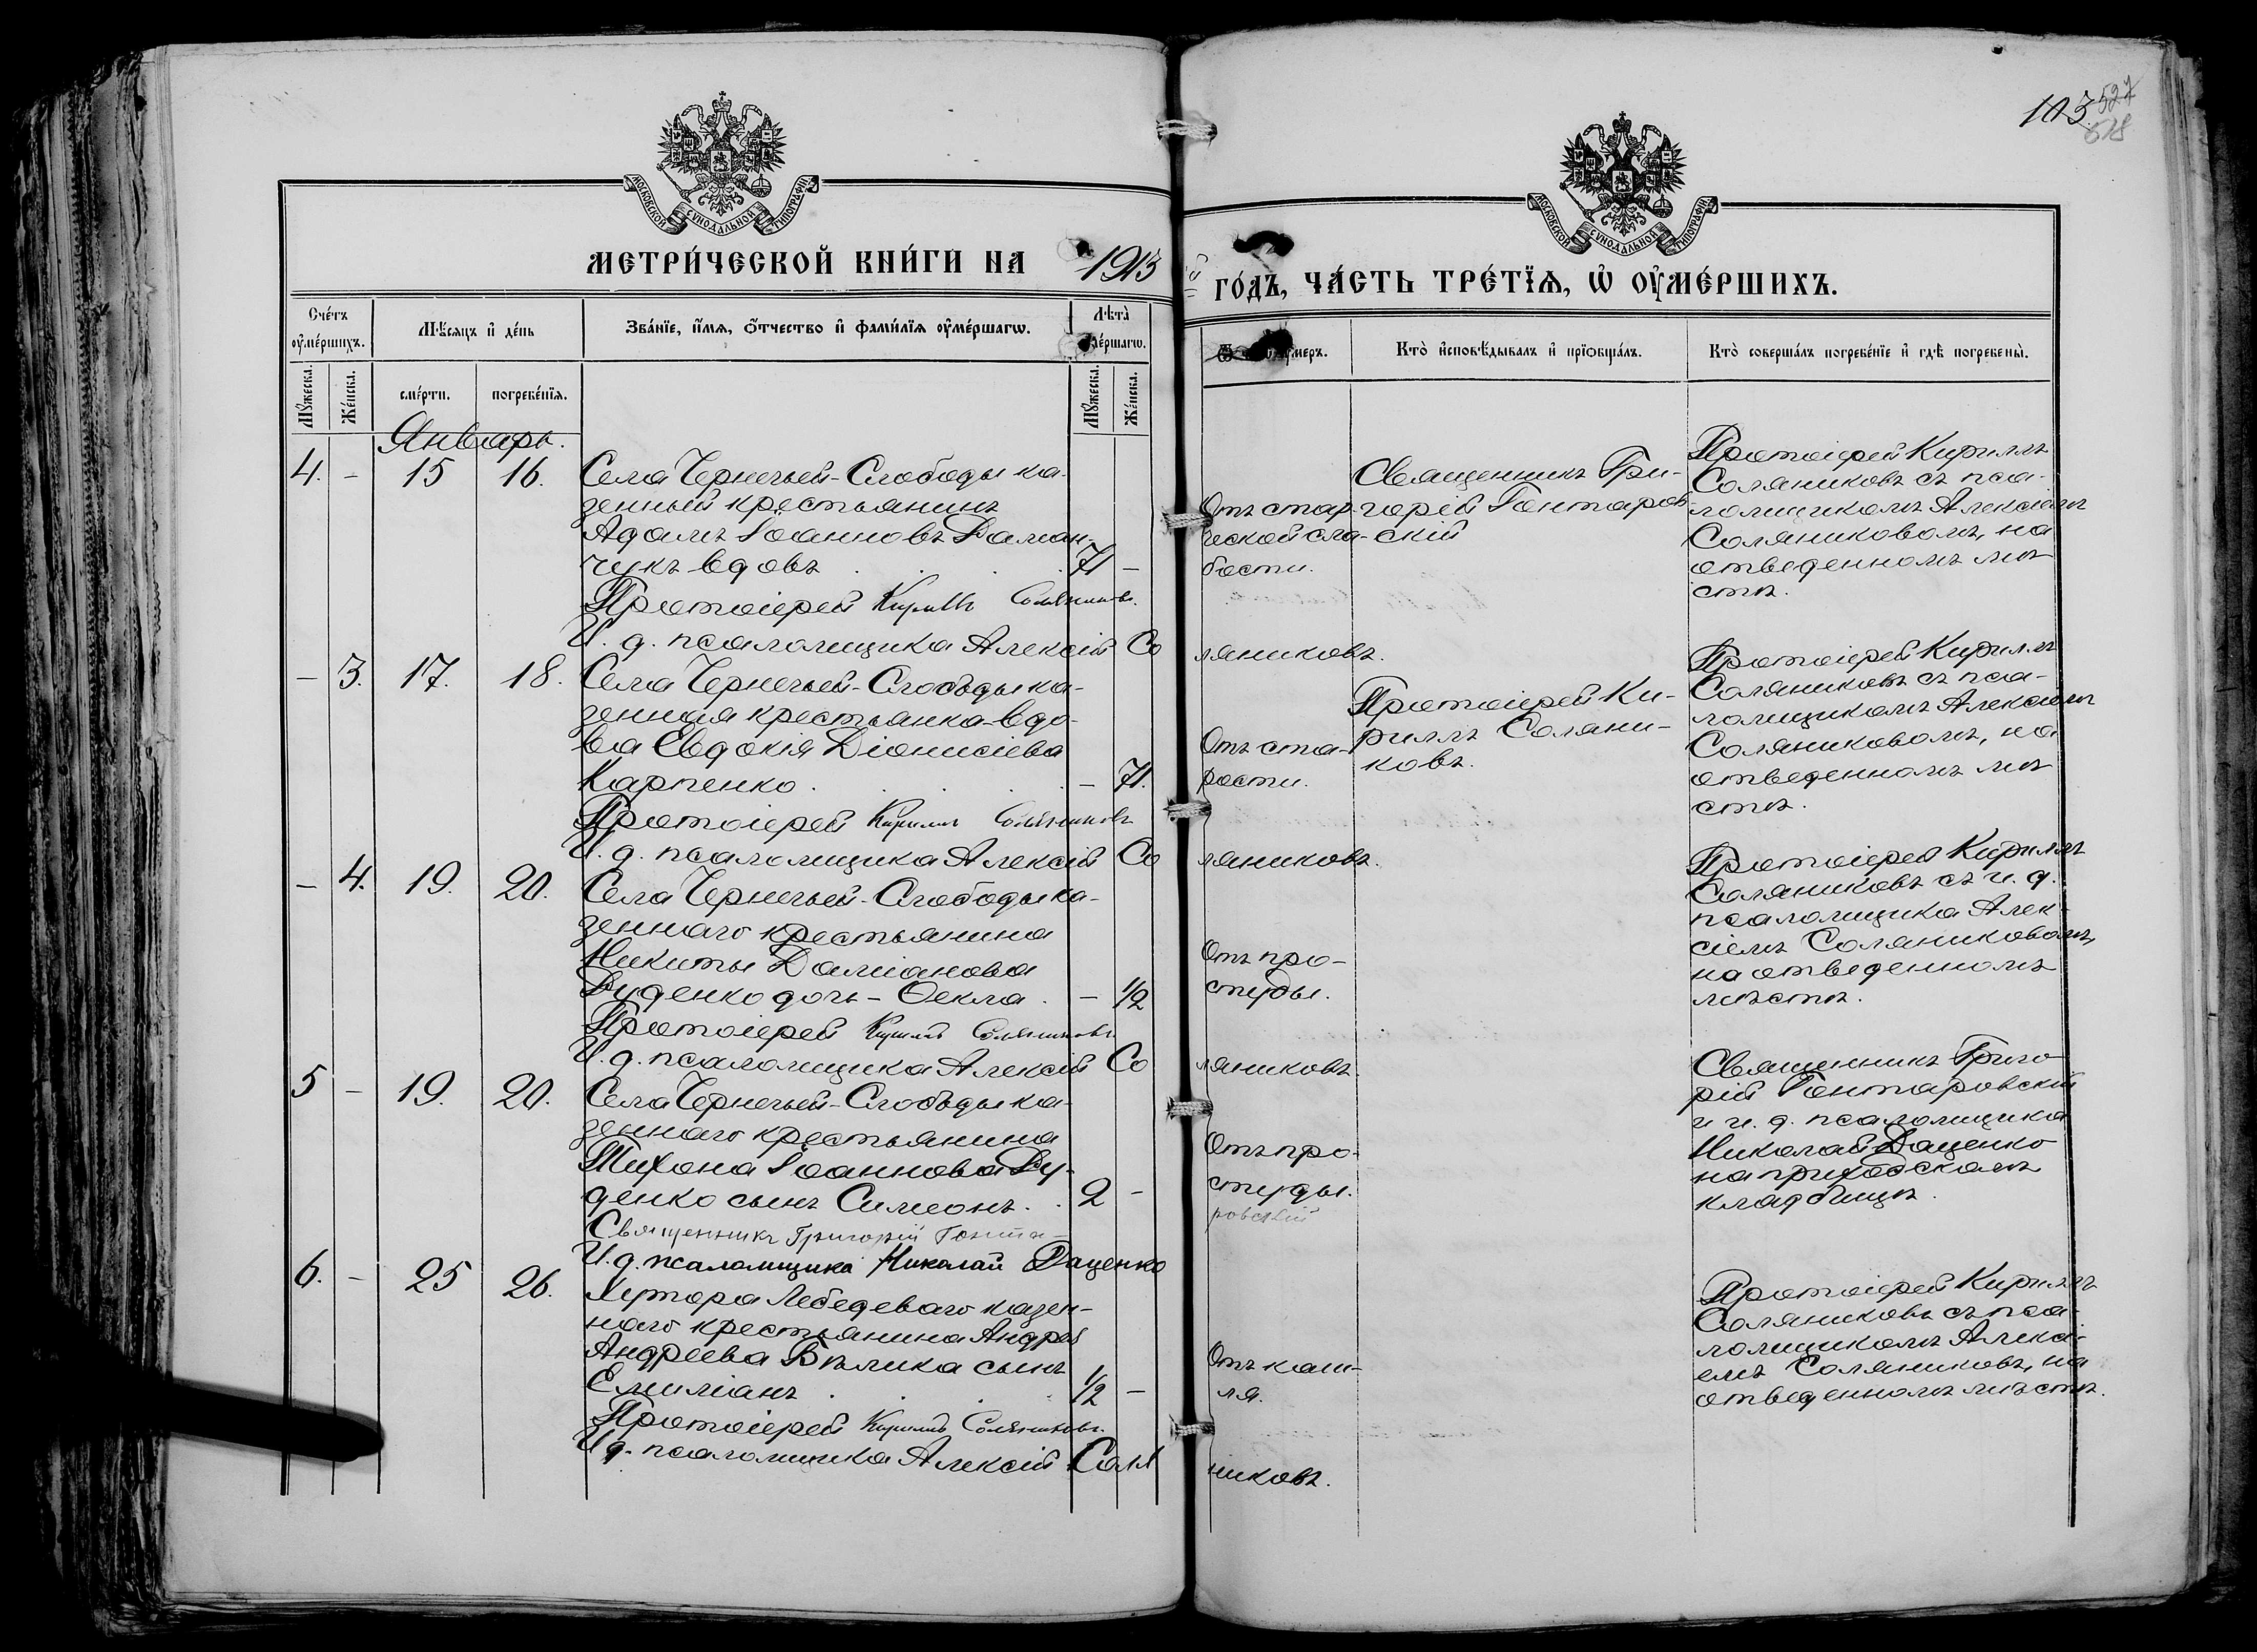 103
527
518
МОСКОВСКОЙ СѴНОДАЛЬНОЙ ТИПОГРАФІИ
МОСКОВСКОЙ СѴНОДАЛЬНОЙ ТИПОГРАФІИ
МЕТРИ́ЧЕСКОЙ КНИ́ГИ НА 1913 ГО́ДЪ, ЧА́СТЬ ТРЕ́ТЇѦ, Ѡ҆ ОУ҆МЕ́РШИХЪ.
Сче́тъ оу҆ме́ршихъ.
Мѣ́сяцъ и҆ де́нь
Зва́нїе, и҆́мѧ, ѻ҆́тчество и҆ фами́лїѧ оу҆ме́ршагѡ.
Лѣта̀
ме́ршагѡ.
Ѿ
ме́ръ.
Кто̀ и҆сповѣ́дывалъ и҆ прїѻбща́лъ.
Кто̀ соверша́лъ погребе́нїе и҆ гдѣ̀ погребены̀.
Мꙋ́жеска.
Же́нска.
сме́рти.
погребе́нїѧ.
Мꙋ́жеска.
Же́нска.
Январь.
4. - 15 16.
Села Чернечьей-Слободы ка-
зенный крестьянинъ
Адамъ Іоанновъ
чукъ вдовъ . . . 71 -
Протоіерей Кириллъ Соляниковъ.
И. д. псаломщика Алексій Соляниковъ.
Отъ стар-
ческой сла-
бости.
Священникъ Гри-
горій Гонтаров-
скій
Протоіерей Кириллъ
Соляниковъ съ пса-
ломщикомъ Алексіемъ
Соляниковомъ, на
отведенномъ мѣ-
стѣ.
- 3. 17. 18.
Села Чернечьей-Слободы ка-
зенная крестьянка-вдо-
ва Евдокія Діонисіева
Карпенко . . . - 71.
Протоіерей Кириллъ Соляниковъ
И. д. псаломщика Алексій Соляниковъ.
Отъ ста-
рости.
Протоіерей Ки-
риллъ Соляни-
ковъ.
Протоіерей Кириллъ
Соляниковъ съ пса-
ломщикомъ Алексіемъ
Соляниковомъ, на
отведенномъ мѣ-
стѣ.
- 4. 19. 20.
Села Чернечьей-Слободы ка-
зеннаго крестьянина
Никиты Даміанова
Руденко дочь - Ѳекла . - 1/2
Протоіерей Кириллъ Соляниковъ
И. д. псаломщика Алексій Соляниковъ.
Отъ про-
студы.
Протоіерей Кириллъ
Соляниковъ съ и. д.
псаломщика Алек-
сіемъ Соляниковомъ,
на отведенномъ
мѣстѣ.
5 - 19. 20.
Села Чернечьей-Слободы ка-
зеннаго крестьянина
Тихона Іоаннова Ру-
денко сынъ Симеонъ. . 2 -
Священникъ Григорій Гонта-
ровскій
И. д. псаломщика Николай Даценко
Отъ про-
студы.
Священникъ Григо-
рій Гонтаровскій
и и. д. псаломщика
Николай Даценко
на приходскомъ
кладбищѣ.
6. - 25 26.
Хутора Лебедеваго казен-
наго крестьянина Андрея
Андреева Бѣлика сынъ
Емиліанъ . . . 1/2 -
Протоіерей Кириллъ Соляниковъ.
И д. псаломщика Алексій Соляниковъ.
Отъ каш-
ля.
Протоіерей Кириллъ
Соляниковъ съ пса-
ломщикомъ Алексі-
емъ Соляниковъ, на
отведенномъ мѣстѣ.